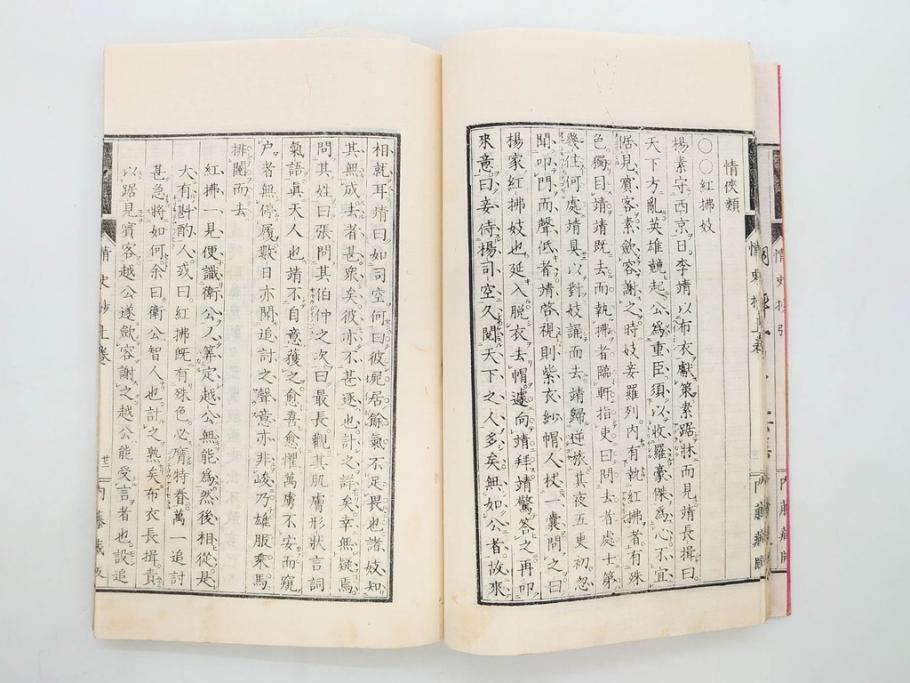 情俠類
○○紅拂妓
楊素守西京日李靖以布衣獻策素踞牀而見靖長揖曰
天下方亂英雄競起公為重臣須以收羅豪傑為心不宜
踞見賓客素斂容謝之時妓妾羅列內有執紅拂者有殊
色獨目靖靖既去而執拂者臨軒指吏曰問去者處士第
幾住何處靖具以對妓誦而去靖歸逆旅其夜五更初忽
聞叩門而聲低者靖啓視則紫衣紗帽人杖一囊問之曰
楊家紅拂妓也延入脫衣去帽遽向靖拜靖驚答之再叩
來意曰妾侍楊司空久閱天下之人多矣無如公者故來
相就耳靖曰如司空何曰彼屍居餘氣不足畏也諸妓知
其無成去者甚衆矣彼亦不甚逐也計之詳矣幸無疑焉
問其姓曰張問其伯仲之次曰最長觀其肌膚形狀言詞
氣語真天人也靖不自意獲之愈喜愈懼萬慮不安而窺
户者無停履數日亦聞追討之聲意亦非峻乃雄服乘馬
排闥而去
紅拂一見便識衛公又算定越公無能為然後相從是
大有斟酌人或曰紅拂既有殊色必膺特眷萬一追討
甚急將如何余曰衛公智人也計之熟矣布衣長揖責
以踞見賓客越公遂斂容謝之越公能受言者也設追
情史抄上卷
廿二
內藤藏板
情史抄引